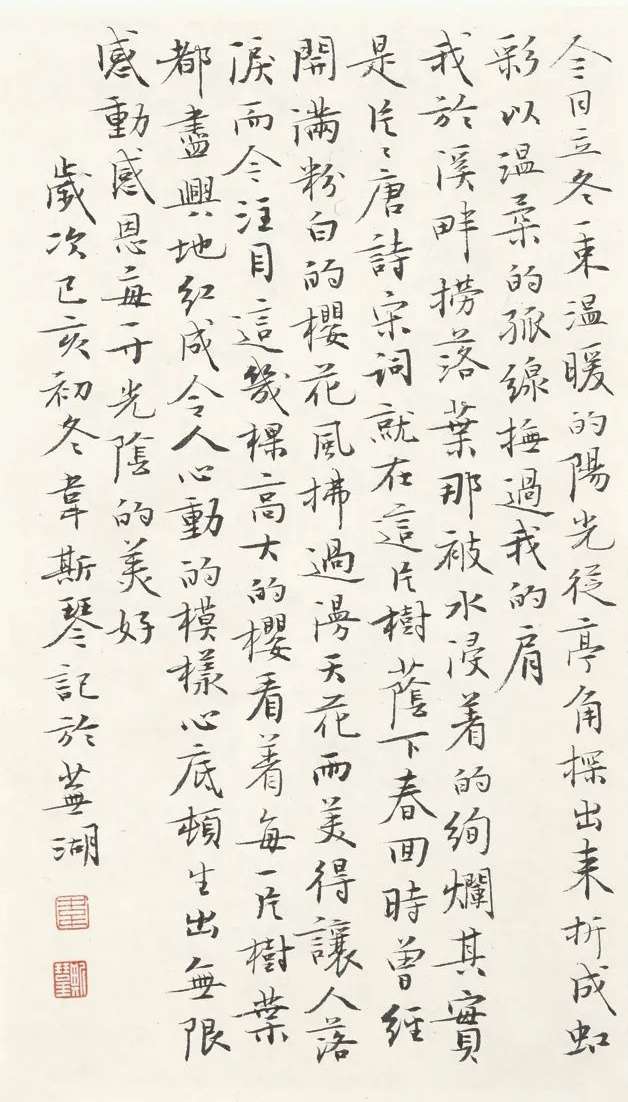 今日立冬一束温暖的陽光從亭角探出来折成虹
彩以温柔的弧線撫過我的肩
我於溪畔撈落葉那被水浸着的絢爛其實
是片片唐詩宋詞就在這片樹蔭下春回時曾經
開滿粉白的櫻花風拂過漫天花雨美得讓人落
淚而今注目這幾棵高大的櫻看着每一片樹葉
都盡興地紅成令人心動的模樣心底頓生出無限
感動感恩每一寸光陰的美好
歲次己亥初冬韋斯琴記於蕪湖
韋
斯琴